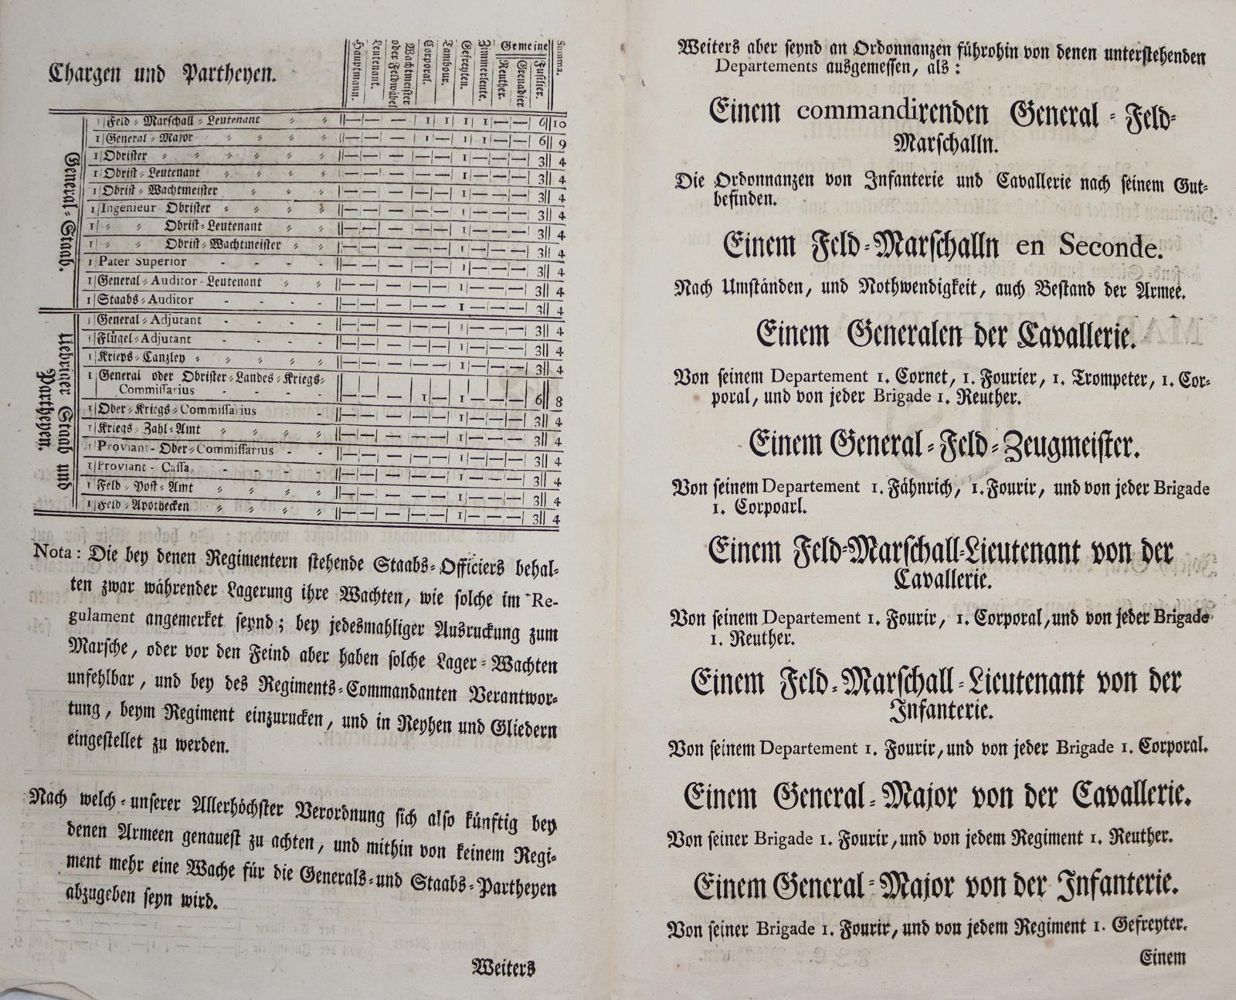 Chargen und Partheyen.
Hauptmann.
Leutenant.
Wachtmeister
oder Feldwäbel
Corporal.
Tambour.
Gefreyten.
Zimmerleute.
Gemeine
Reuther.
Grenadier
Fusilier.
Summa.
General-Stab.
1 Feld-Marschall-Leutenant - - — — — 1 1 1 1 — — 6 10
1 General-Major - - — — — 1 — 1 1 — — 6 9
1 Obrister - - - - - — — — — — 1 — — — 3 4
1 Obrist-Leutenant - - - — — — — — 1 — — — 3 4
1 Obrist-Wachtmeister - - — — — — — 1 — — — 3 4
1 Ingenieur Obrister - - - — — — — — 1 — — — 3 4
1 - - Obrist-Leutenant - - — — — — — 1 — — — 3 4
1 - - Obrist-Wachtmeister - - — — — — — 1 — — — 3 4
1 Pater Superior - - - - — — — — — 1 — — — 3 4
1 General-Auditor-Leutenant - - — — — — — 1 — — — 3 4
1 Staabs-Auditor - - - - — — — — — 1 — — — 3 4
Uebriger Staab und
Partheyen.
1 General-Adjutant - - - - — — — — — 1 — — — 3 4
1 Flügel-Adjutant - - - - — — — — — 1 — — — 3 4
1 Kriegs-Canzley - - - - — — — — — 1 — — — 3 4
1 General oder Obrister-Landes-Kriegs-
Commissarius - - - - — — — 1 — 1 — — — 6 8
1 Ober-Kriegs-Commissarius - — — — — — 1 — — — 3 4
1 Kriegs-Zahl-Amt - - - - — — — — — 1 — — — 3 4
1 Proviant-Ober-Commissarius - - — — — — — 1 — — — 3 4
1 Proviant-Cassa. - - - - — — — — — 1 — — — 3 4
1 Feld-Post-Amt - - - - — — — — — 1 — — — 3 4
1 Feld-Apothecken - - - - — — — — — 1 — — — 3 4
Nota: Die bey denen Regimentern stehende Staabs-Officiers behal-
ten zwar währender Lagerung ihre Wachten, wie solche im Re-
gulament angemerket seynd; bey jedesmahliger Ausruckung zum
Marsche, oder vor den Feind aber haben solche Lager-Wachten
unfehlbar, und bey des Regiments-Commandanten Verantwor-
tung, beym Regiment einzurucken, und in Reyhen und Gliedern
eingestellet zu werden.
Nach welch-unserer Allerhöchster Verordnung sich also künftig bey
denen Armeen genauest zu achten, und mithin von keinem Regi-
ment mehr eine Wache für die Generals-und Staabs-Partheyen
abzugeben seyn wird.
Weiters
Weiters aber seynd an Ordonnanzen führohin von denen unterstehenden
Departements ausgemessen, als:
Einem commandirenden General-Feld-
Marschalln.
Die Ordonnanzen von Infanterie und Cavallerie nach seinem Gut-
befinden.
Einem Feld-Marschalln en Seconde.
Nach Umständen, und Nothwendigkeit, auch Bestand der Armee.
Einem Generalen der Cavallerie.
Von seinem Departement 1. Cornet, 1. Fourier, 1. Trompeter, 1. Cor-
poral, und von jeder Brigade 1. Reuther.
Einem General-Feld-Zeugmeister.
Von seinem Departement 1. Fähnrich, 1. Fourir, und von jeder Brigade
1. Corpoarl.
Einem Feld-Marschall-Lieutenant von der
Cavallerie.
Von seinem Departement 1. Fourir, 1. Corporal, und von jeder Brigade
1. Reuther.
Einem Feld-Marschall-Lieutenant von der
Infanterie.
Von seinem Departement 1. Fourir, und von jeder Brigade 1. Corporal.
Einem General-Major von der Cavallerie.
Von seiner Brigade 1. Fourir, und von jedem Regiment 1. Reuther.
Einem General-Major von der Infanterie.
Von seiner Brigade 1. Fourir, und von jedem Regiment 1. Gefreyter.
Einem